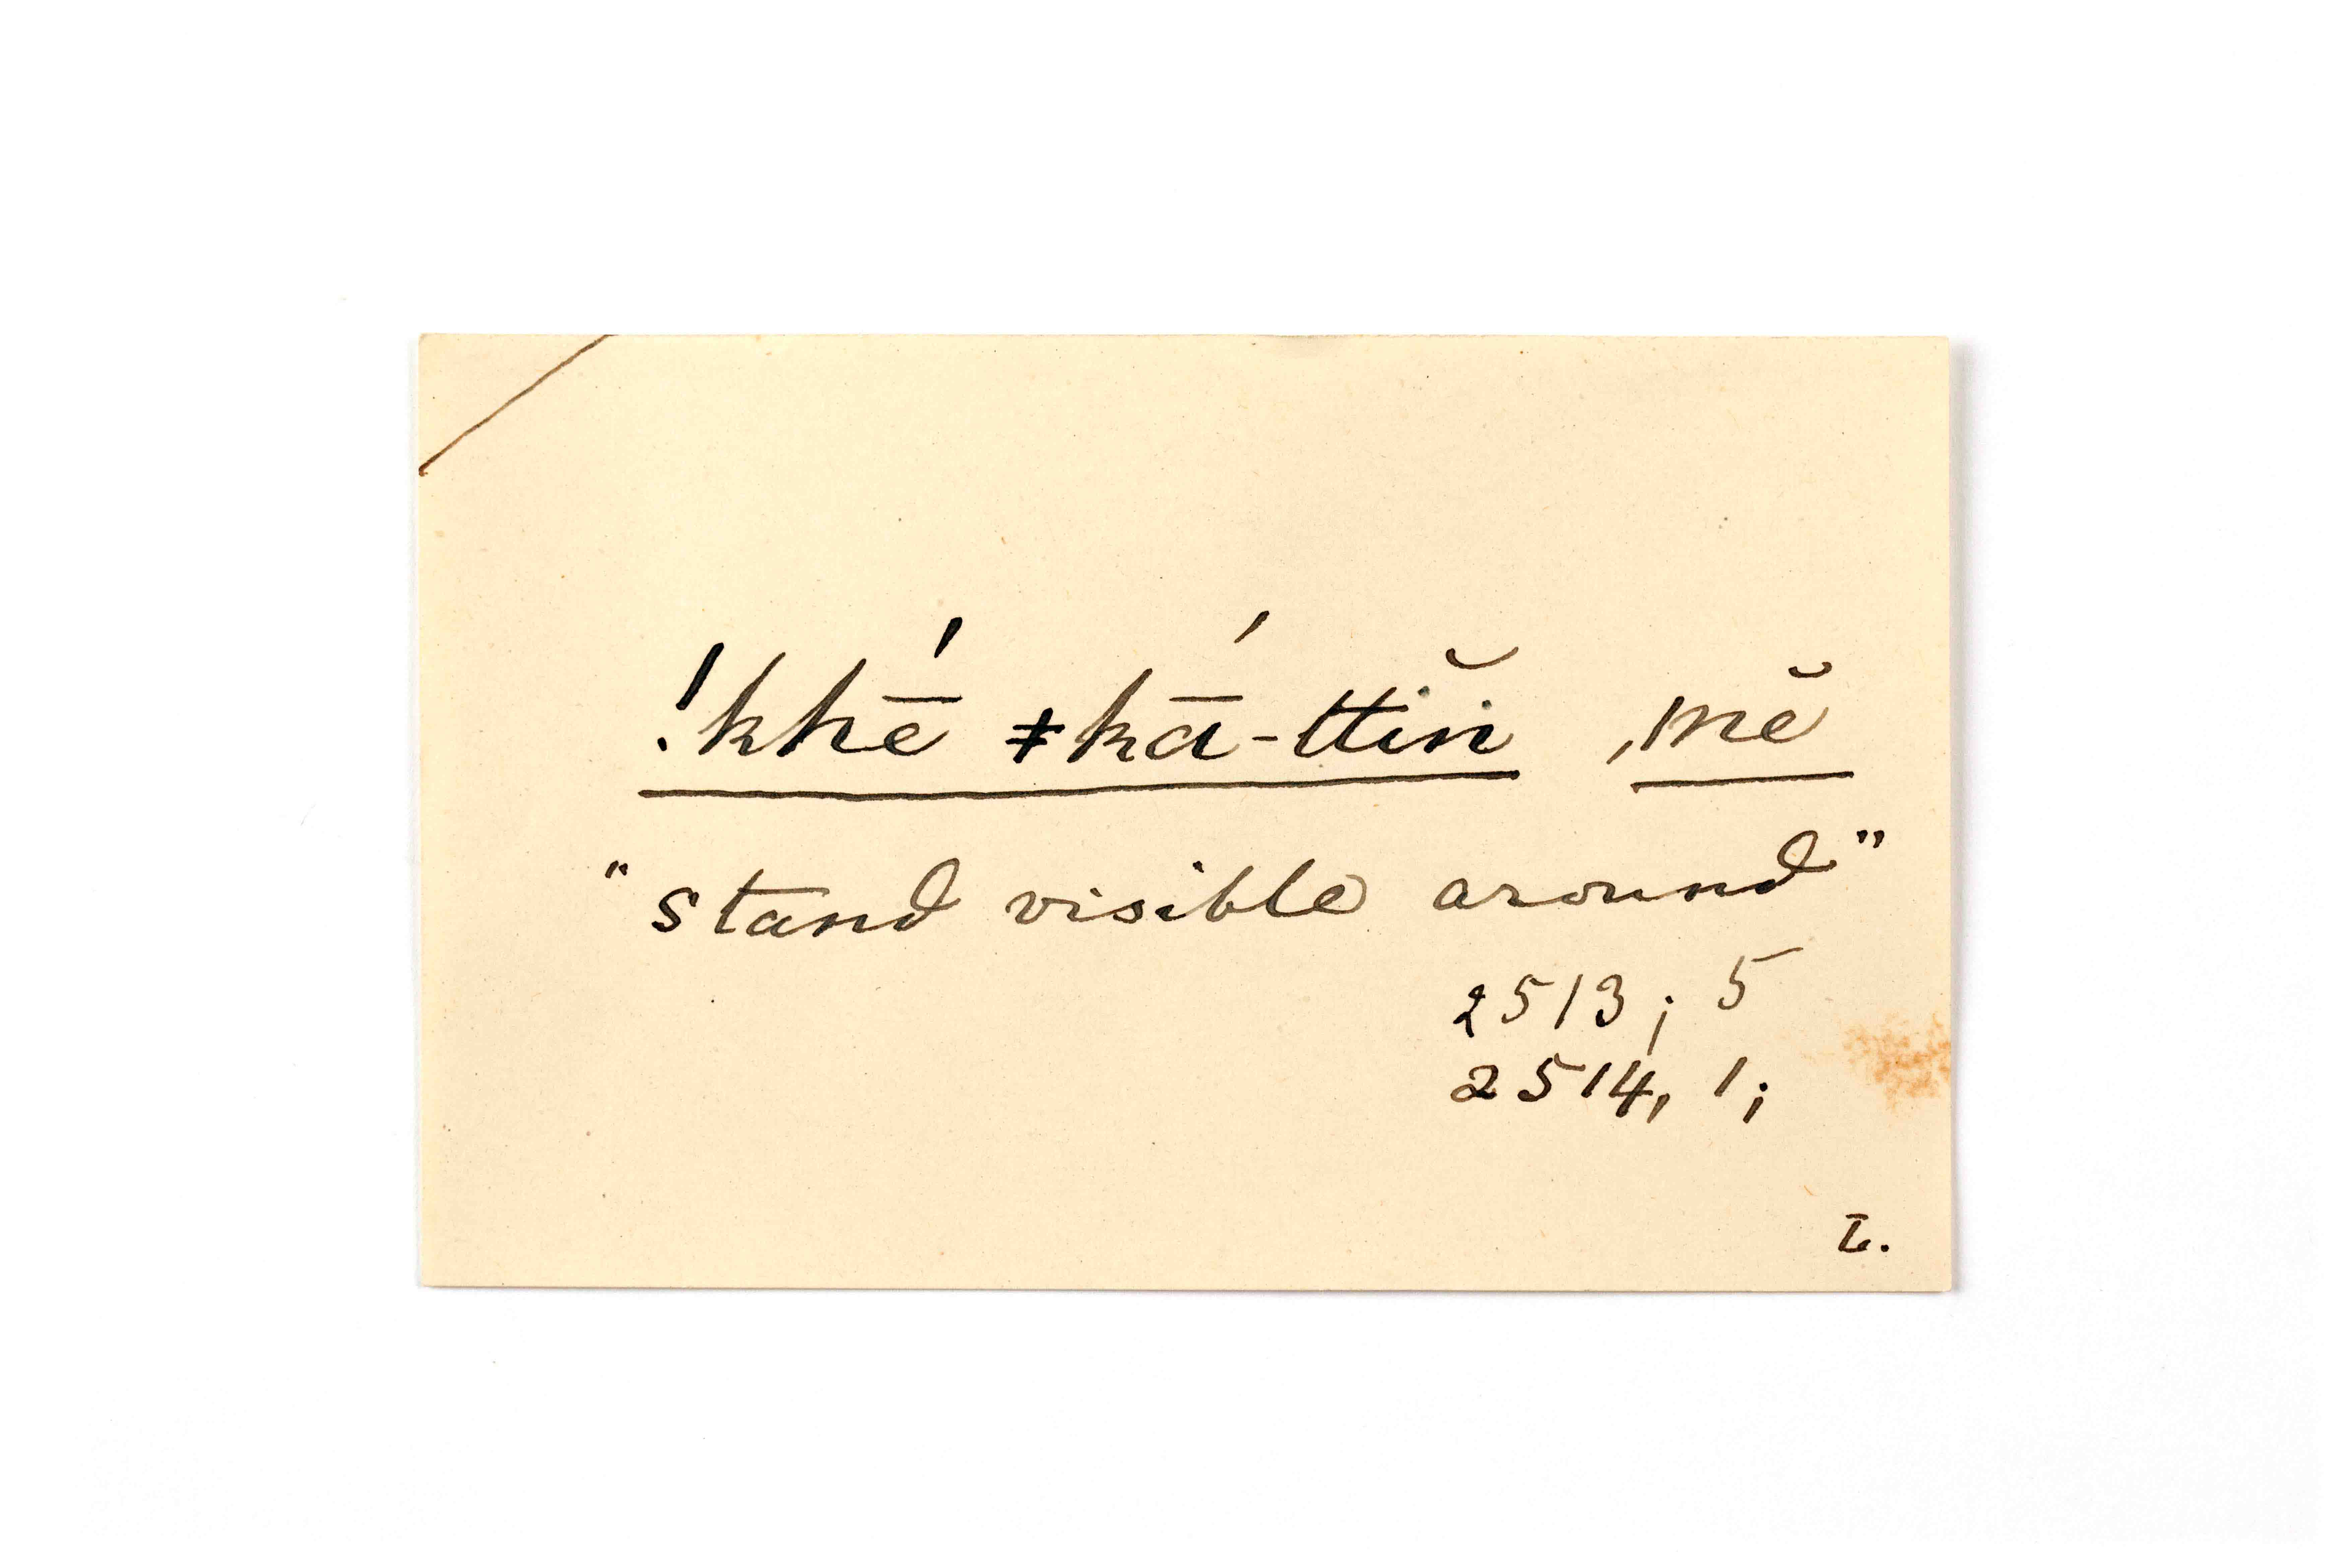 !khḗ ǂkā́-ttĭn ,mĕ
"stand visible around"
2513; 5
2514, 1;
L.